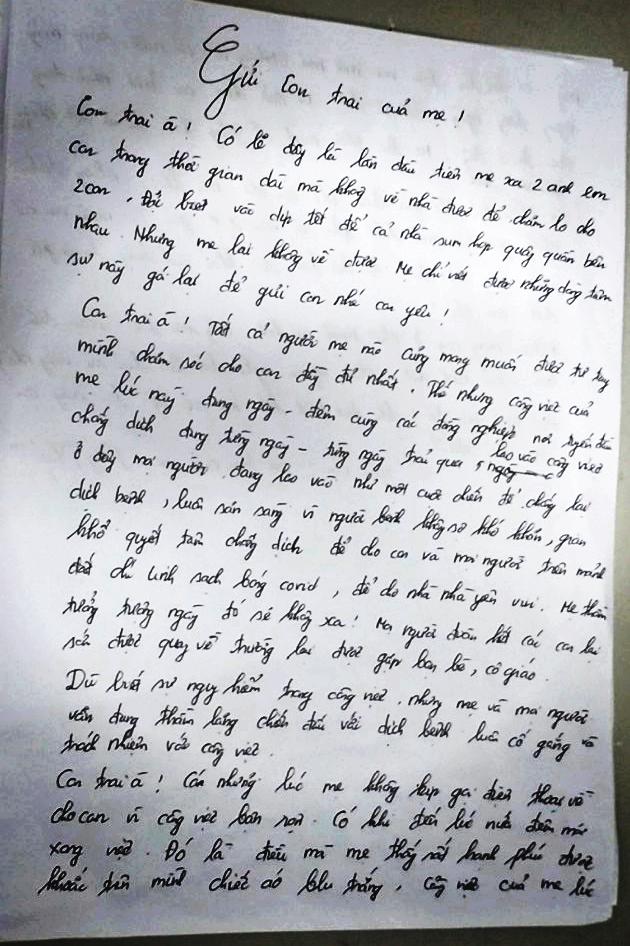 Gửi con trai của mẹ!
Con trai à! Có lẽ đây là lần đầu tiên mẹ xa 2 anh em
con trong thời gian dài mà không về nhà được để chăm lo cho
2 con. Đặc biệt vào dịp tết để cả nhà sum họp quây quần bên
nhau. Nhưng mẹ lại không về được. Mẹ chỉ viết được những dòng tâm
sự này gá lại để gửi con nhé con yêu!
Con trai à! Tất cả người mẹ nào cũng mong muốn được tự tay
mình chăm sóc cho con đầy đủ nhất. Thế nhưng công việc của
mẹ lúc này đang ngày - đêm cùng các đồng nghiệp nơi tuyến đầu
chống dịch đang từng ngày - từng ngày trải qua lao vào công việc
ở đây mọi người đang lao vào như một cuộc chiến để chống lại
dịch bệnh, luôn sẵn sàng vì người bệnh không sợ khó khăn, gian
khổ quyết tâm chống dịch để cho con và mọi người trên mảnh
đất chí linh sạch bóng covid, để cho nhà nhà yên vui. Mẹ thầm
tưởng tượng ngày đó sẽ không xa! Mọi người đoàn kết các con lại
sẽ được quay về trường lại được gặp bạn bè, cô giáo.
Dù biết sự nguy hiểm trong công việc, nhưng mẹ và mọi người
vẫn đang thầm lặng chiến đấu với dịch bệnh luôn cố gắng và
trách nhiệm với công việc.
Con trai à! Có những lúc mẹ không kịp gọi điện thoại về
cho con vì công việc bận rộn. Có khi đến lúc nửa đêm mới
xong việc. Đó là điều mà mẹ thấy rất hạnh phúc được
khoác trên mình chiếc áo blu trắng, công việc của mẹ lúc